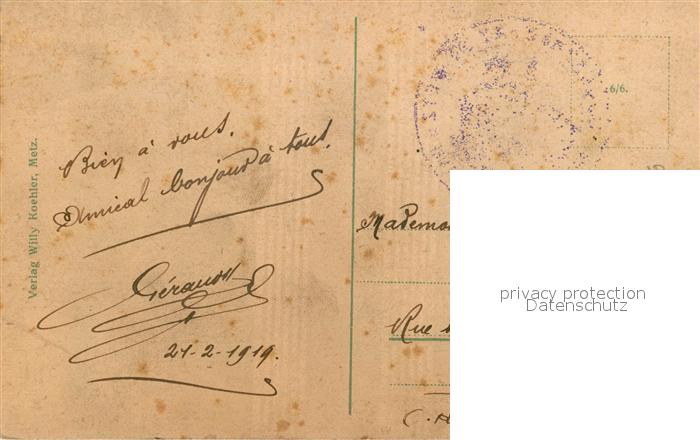 Verlag Willy Koehler, Metz.
Bien à vous.
Amical bonjour à tous.
21-2-1919.
6/6.
Mademo
Rue
privacy protection
Datenschutz